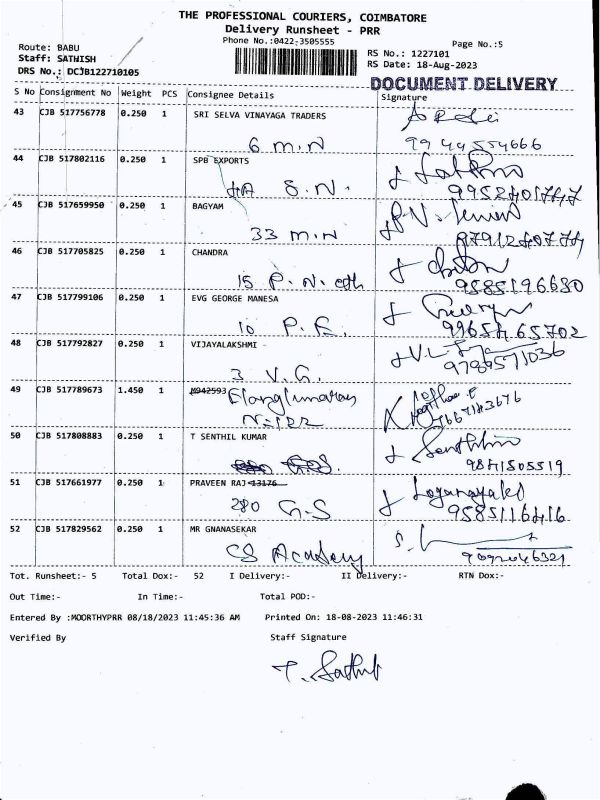 THE PROFESSIONAL COURIERS, COIMBATORE
Delivery Runsheet - PRR
Phone No.:0422-3505555
Page No.:5
Route: BABU
RS No.: 1227101
Staff: SATHISH
RS Date: 18-Aug-2023
DRS No.: DCJB122710105
DOCUMENT DELIVERY
S No Consignment No Weight PCS Consignee Details Signature
43 CJB 517756778 0.250 1 SRI SELVA VINAYAGA TRADERS
6 M.N 9944554666
44 CJB 517802116 0.250 1 SPB EXPORTS
S.N.
45 CJB 517659950 0.250 1 BAGYAM
33 M.N
46 CJB 517705825 0.250 1 CHANDRA
15 P.N. 9585196680
47 CJB 517799106 0.250 1 EVG GEORGE MANESA
10 P.E. 9965465702
48 CJB 517792827 0.250 1 VIJAYALAKSHMI -
3 V.G. 9789571036
49 CJB 517789673 1.450 1 M942593
50 CJB 517808883 0.250 1 T SENTHIL KUMAR
9841505519
51 CJB 517661977 0.250 1 PRAVEEN RAJ 13176
280 G.S 9585116416
52 CJB 517829562 0.250 1 MR GNANASEKAR
CS Academy 9092046321
Tot. Runsheet:- 5 Total Dox:- 52 I Delivery:- II Delivery:- RTN Dox:-
Out Time:- In Time:- Total POD:-
Entered By :MOORTHYPRR 08/18/2023 11:45:36 AM Printed On: 18-08-2023 11:46:31
Verified By Staff Signature
T. Sathish